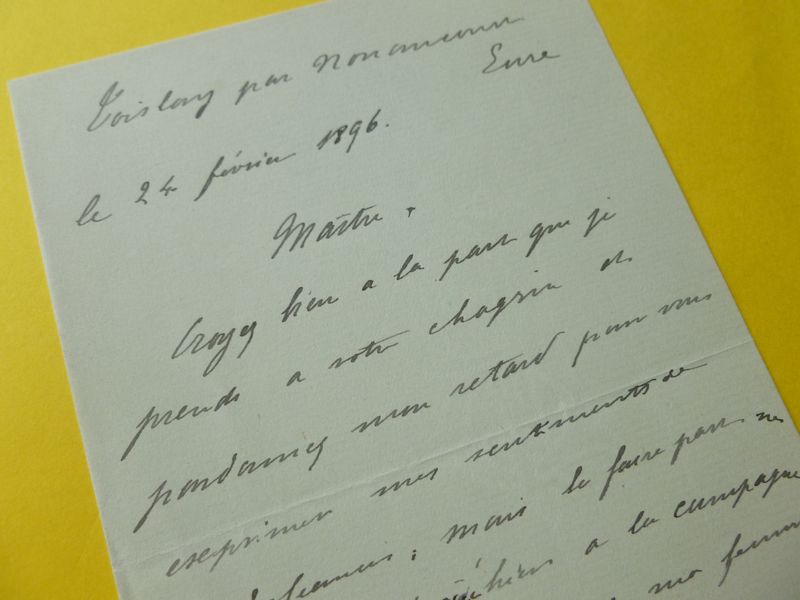 Toislay par Nonancourt
Eure
le 24 février 1896.
Maître.
Croyez bien a la part que je
prends a votre chagrin et
pardonnez mon retard pour vous
exprimer mes sentiments de
; mais le faire part ne
hier a la campagne
ma femme